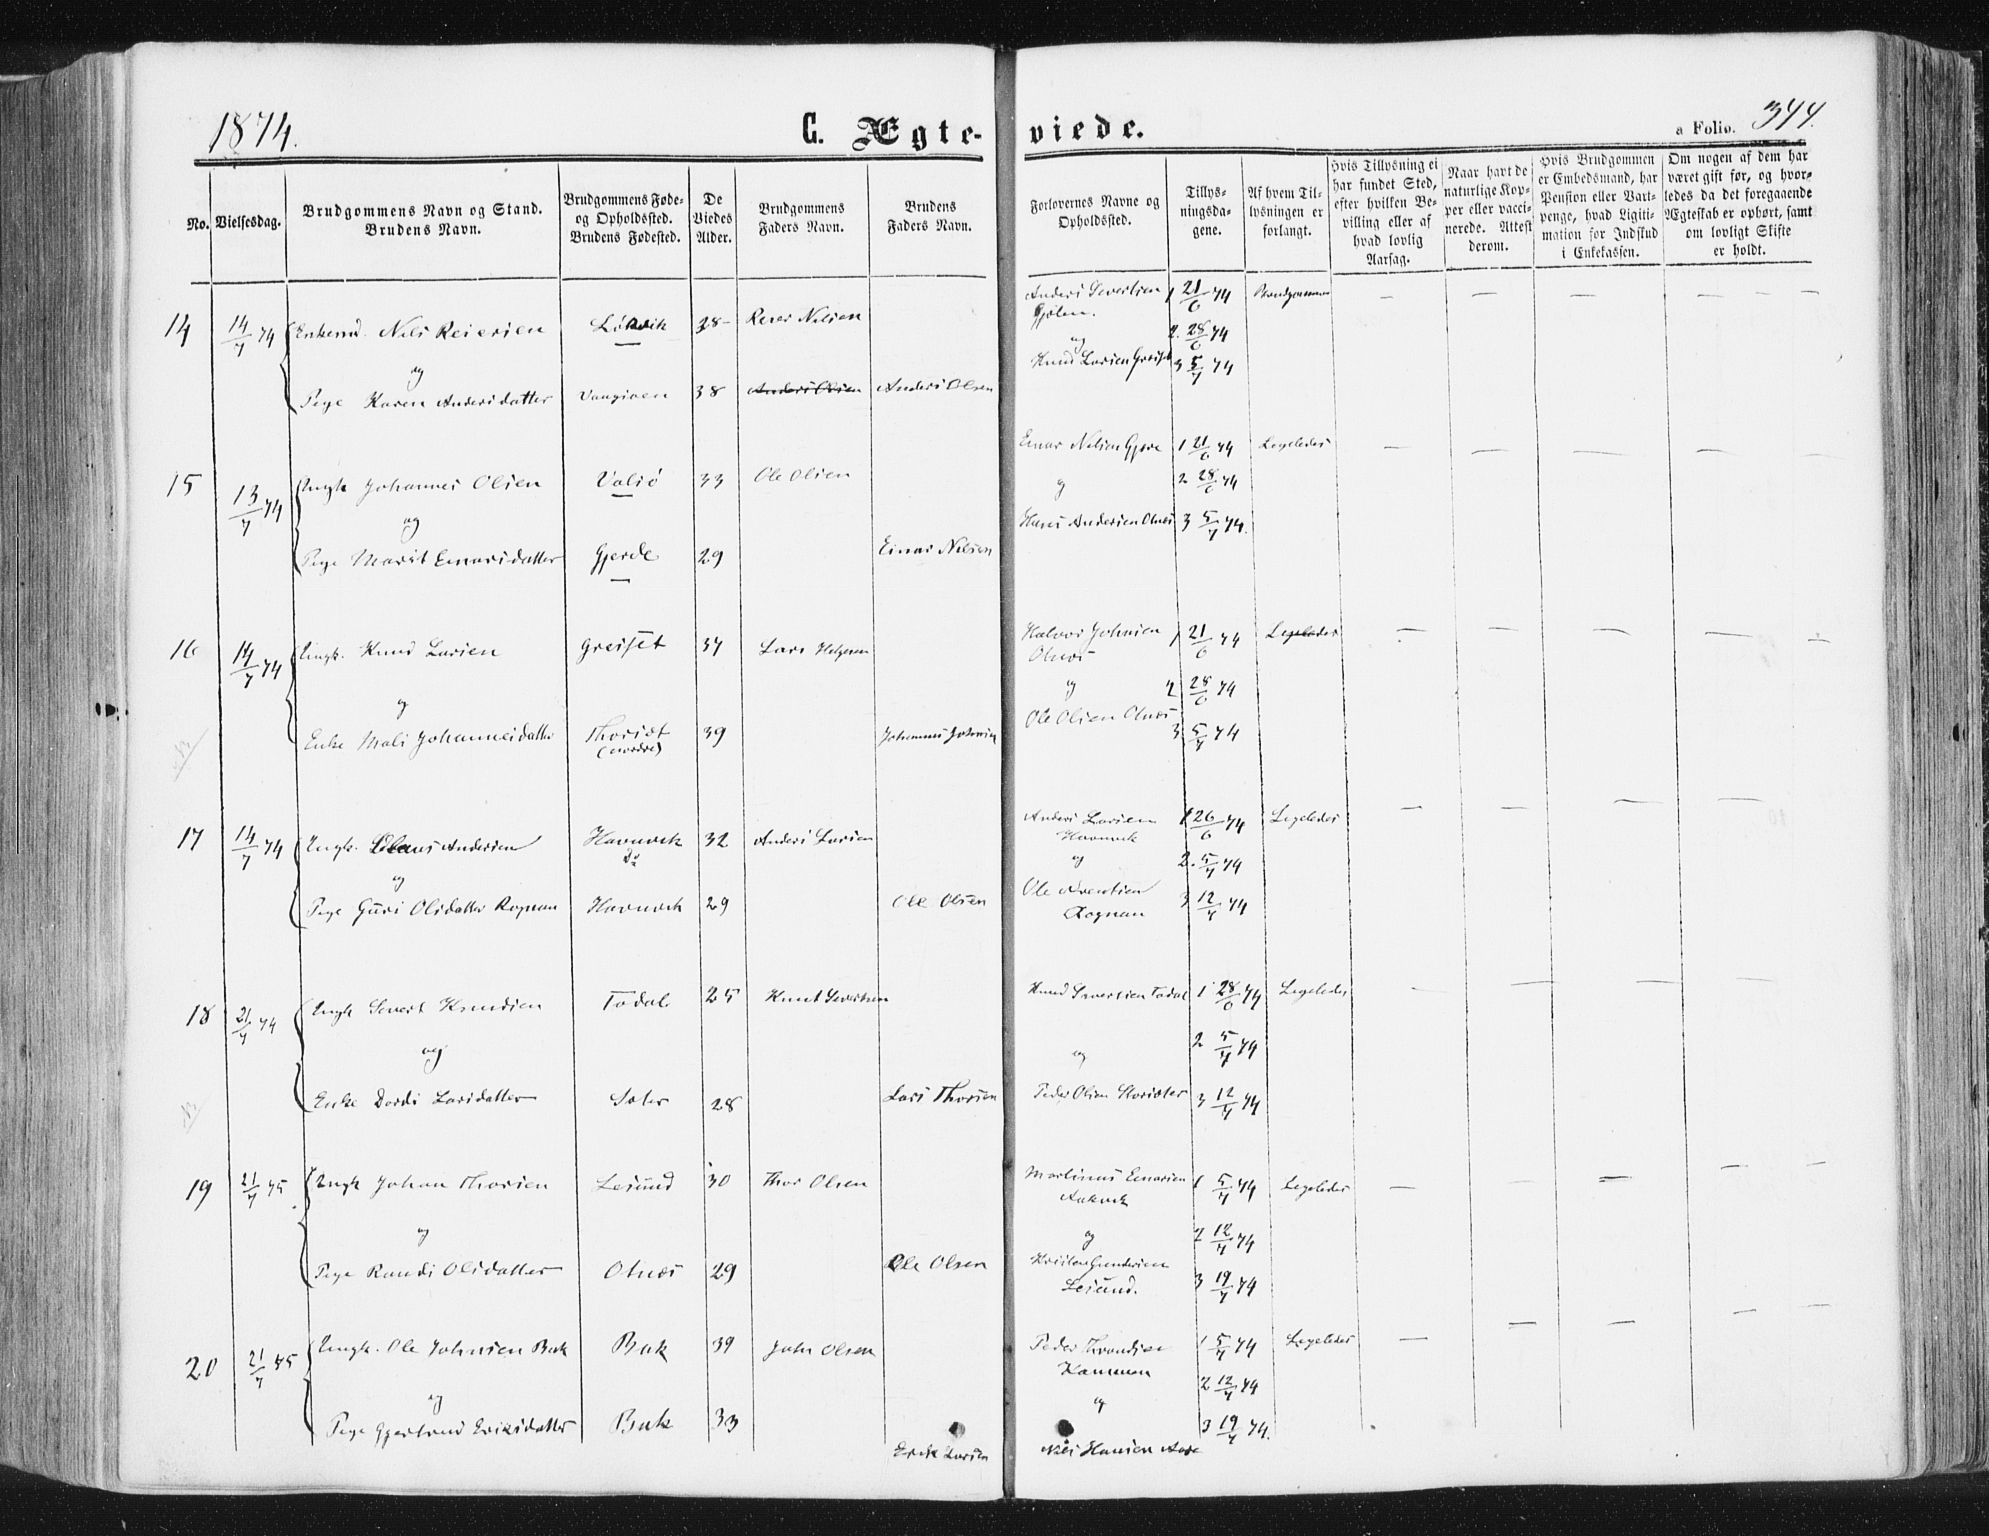 1874.
C. Ægteviede.
a Folio. 344.
No.
Vielsesdag.
Brudgommens Navn og Stand.
Brudens Navn.
Brudgommens Føde-
og Opholdssted.
Brudens Fødested.
De
Viedes
Alder.
Brudgommens
Faders Navn.
Brudens
Faders Navn.
Forlovernes Navne og
Opholdssted.
Tillys-
ningsda-
gene.
Af hvem Til-
lysningen er
forlangt.
Hvis Tillysning ei
har fundet Sted,
efter hvilken Be-
villing eller af
hvad lovlig
Aarsag.
Naar havt de
naturlige Kop-
per eller vacci-
nerede. Attest
derom.
Hvis Brudgommen
er Embedsmand, har
Pension eller Vart-
penge, hvad Ligiti-
mation for Indskud
i Enkekassen.
Om nogen af dem har
været gift før, og hvor-
ledes da det foregaaende
Ægteskab er ophørt, samt
om lovligt Skifte
er holdt.
14 14/7 74 Enkemd. Nels Reiersen 38 Reier Nelsen Anders Sivertsen 1 21/6 74 Brudgommen
2. 28/6 74
og
Pige Karen Andersdatter 38 Anders Olsen Anders Olsen Knud Larsen Greiset 3 5/7 74
15 13/7 74 Ungk Johannes Olsen Valsø 33 Ole Olsen Einar Nelsen Gjere 1 21/6 74 Ligeledes
og og 2 28/6 74
Pige Marit Einarsdatter Gjerde 29 Einar Nelsen Hans Andersen Otnes 3 5/7 74.
16 14/7 74 Ungk. Knud Larsen Greiset 37 Lars Helgesen Halvor Johnsen 1 21/6 74 Ligeledes
Otnes
og og 2 28/6 74
Enke Mali Johannesdatter Thorset 39 Johannes Johnsen Ole Olsen Otnes 3 5/7 74
(nordre)
17 14/7 74 Ungk. Andersen Havnvek 32 Anders Larsen Anders Larsen 1 26/6 74 Ligeledes
Havnvek
og og 2. 5/7 74
Pige Guri Olsdatter Rognan Havnvek 29 Ole Olsen Ole 3 12/7 74
Rognan
18 21/7 74 Ungk Sivert Knudsen Todal 25 Knut Sivertsen Knud Sivertsen Todal 1 28/6 74 Ligeledes
og og 2 5/7 74
Enke Dordi Larsdatter Sæter 28 Lars Thorsen Peder Olsen 3 12/7 74
19 21/7 75 Ungk Johan Thorsen Leiund 30 Thor Olsen Martinus Einarsen 1 5/7 74 Ligeledes
Aakvek
og og 2 12/7 74
Pige Randi Olsdatter Otnes 29 Ole Olsen Kristen Gundersen
Leiund. 3 19/7 74
20 21/7 75 Ungk. Ole Johnsen Bak Bak 39 John Olsen Peder 1 5/7 74 Ligeledes
Hammen 2 12/7 74
og og
Pige Gjertrud Eriksdatter Bak 33 Erik Larsen Nels Hansen Aase 3 19/7 74.